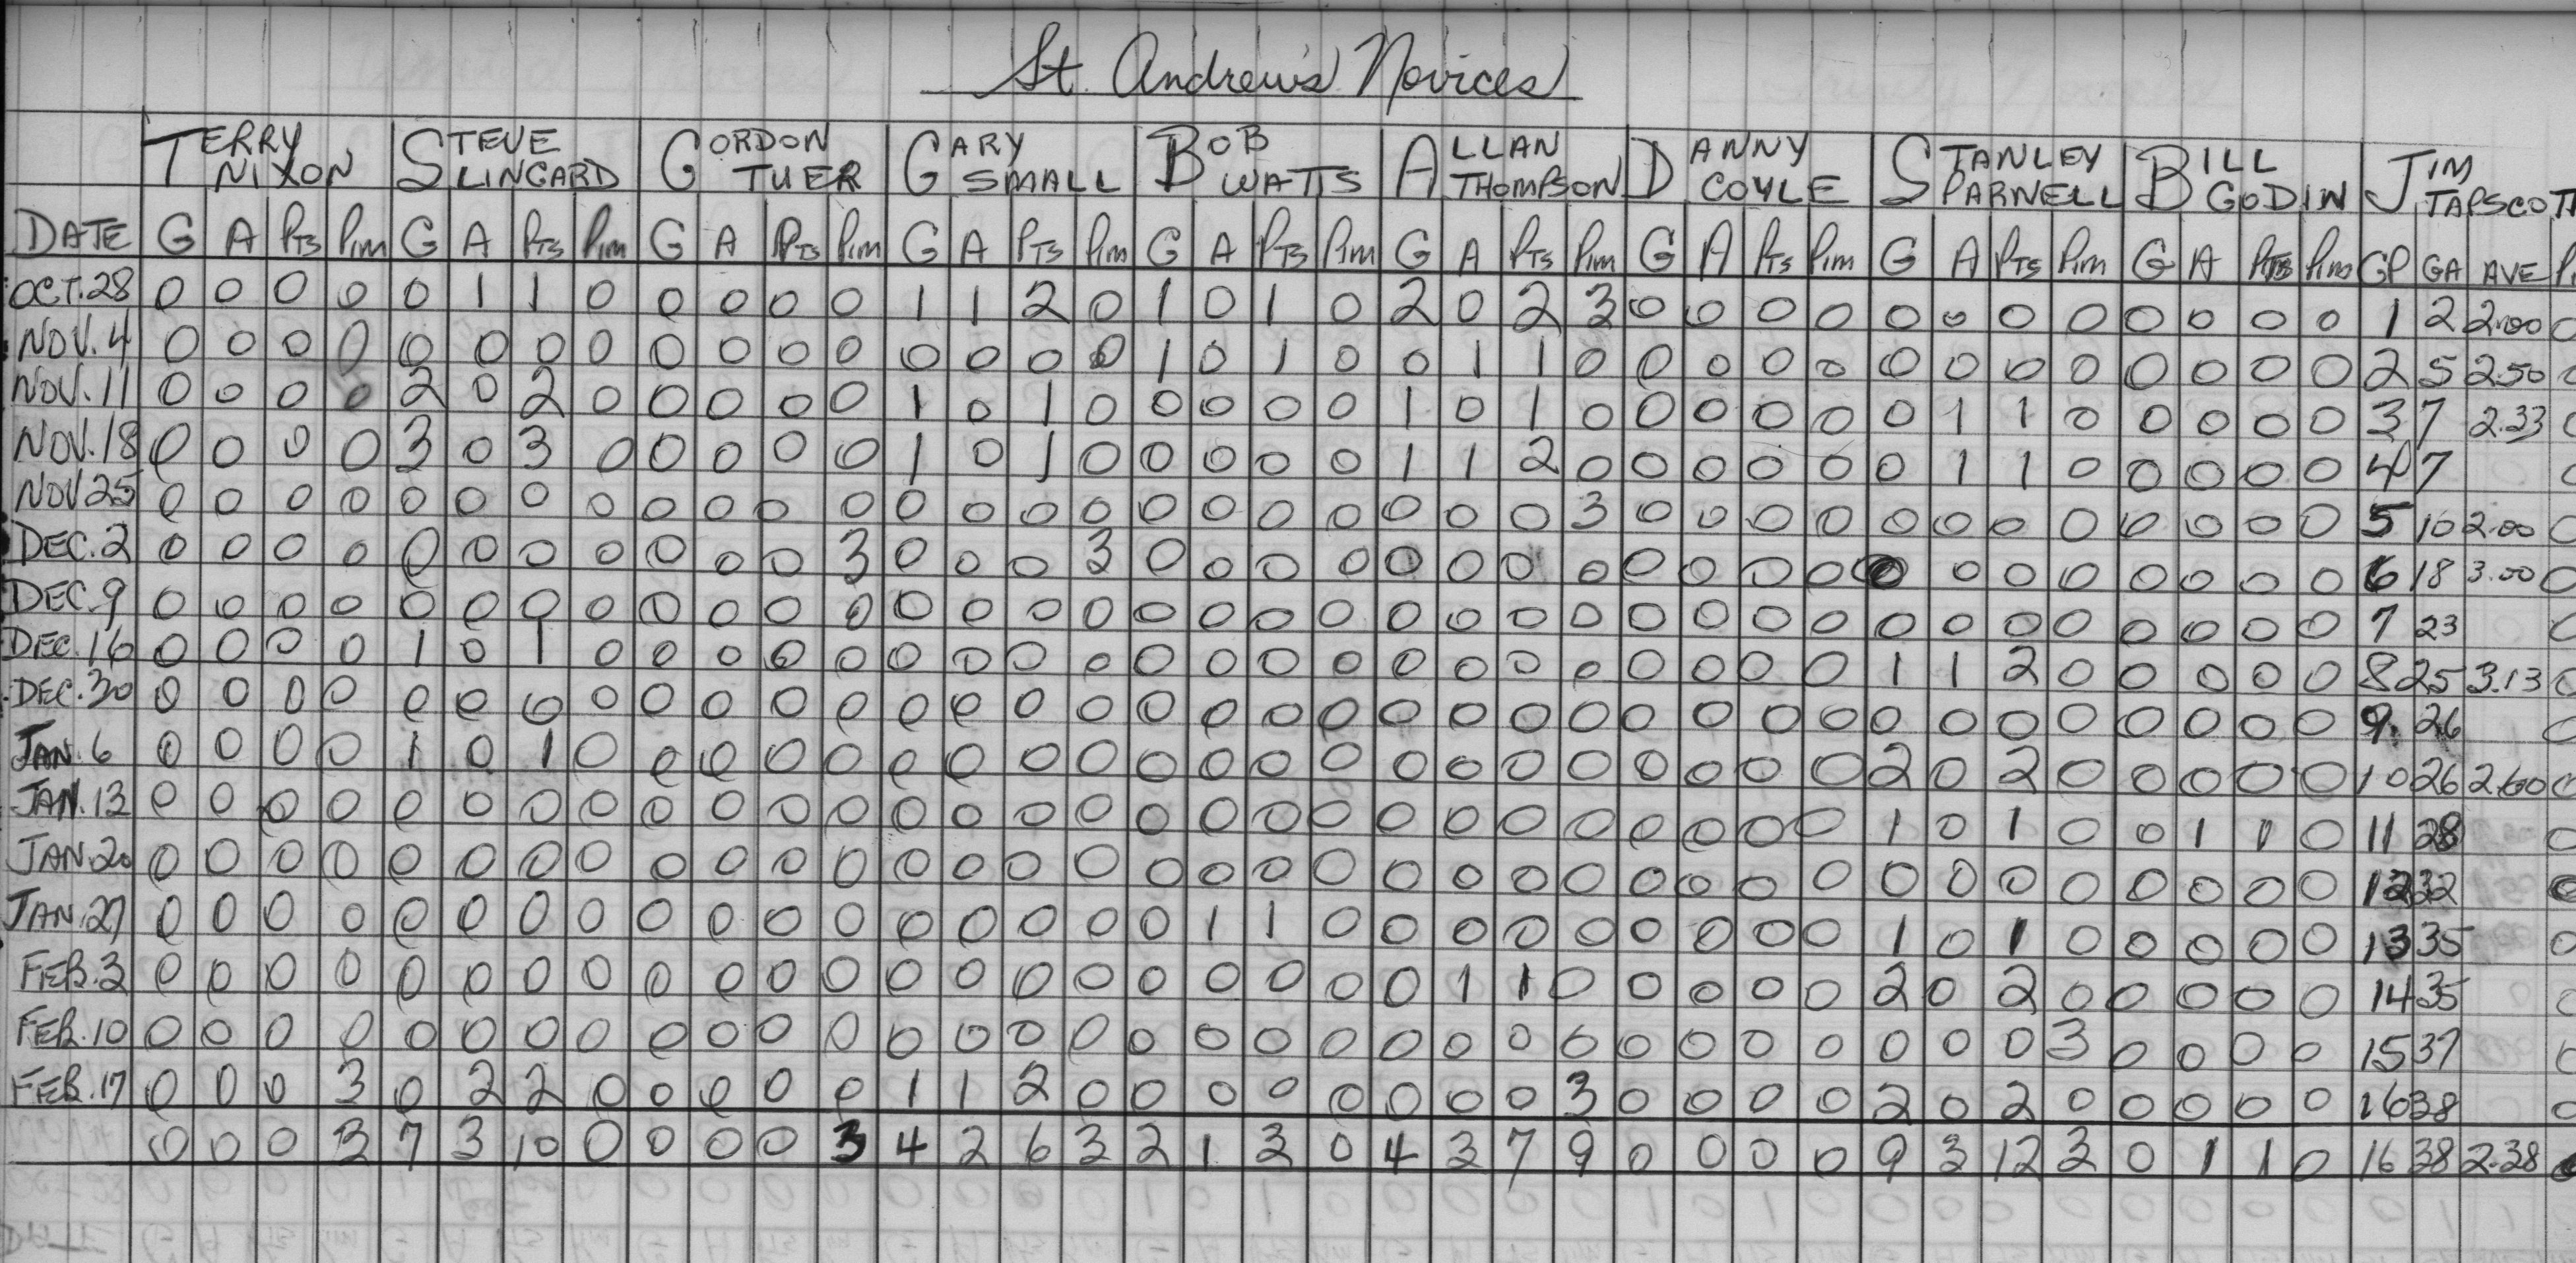 St. Andrew's Novices
TERRY NIXON STEVE SLINGARD GORDON TUER GARY SMALL BOB WATTS ALLAN THOMPSON DANNY COYLE STANLEY PARNELL BILL GODIN JIM TAPSCOTT
DATE G A Pts Pim G A Pts Pim G A Pts Pim G A Pts Pim G A Pts Pim G A Pts Pim G A Pts Pim G A Pts Pim G A Pts Pim GP GA AVE
OCT. 28 0 0 0 0 0 1 1 0 0 0 0 0 1 1 2 0 1 0 1 0 2 0 2 3 0 0 0 0 0 0 0 0 0 0 0 0 1 2 2.00 0
NOV. 4 0 0 0 0 0 0 0 0 0 0 0 0 0 0 0 0 1 0 1 0 0 1 1 0 0 0 0 0 0 0 0 0 0 0 0 0 2 5 2.50 0
NOV. 11 0 0 0 0 2 0 2 0 0 0 0 0 1 0 1 0 0 0 0 0 1 0 1 0 0 0 0 0 0 1 1 0 0 0 0 0 3 7 2.33 0
NOV. 18 0 0 0 0 3 0 3 0 0 0 0 0 1 0 1 0 0 0 0 0 1 1 2 0 0 0 0 0 0 1 1 0 0 0 0 0 4 7 0
NOV 25 0 0 0 0 0 0 0 0 0 0 0 0 0 0 0 0 0 0 0 0 0 0 0 3 0 0 0 0 0 0 0 0 0 0 0 0 5 10 2.00 0
DEC. 2 0 0 0 0 0 0 0 0 0 0 0 3 0 0 0 3 0 0 0 0 0 0 0 0 0 0 0 0 0 0 0 0 0 0 0 0 6 18 3.00 0
DEC. 9 0 0 0 0 0 0 0 0 0 0 0 0 0 0 0 0 0 0 0 0 0 0 0 0 0 0 0 0 0 0 0 0 0 0 0 0 7 23 0
DEC. 16 0 0 0 0 1 0 1 0 0 0 0 0 0 0 0 0 0 0 0 0 0 0 0 0 0 0 0 0 1 1 2 0 0 0 0 0 8 25 3.13 0
DEC. 30 0 0 0 0 0 0 0 0 0 0 0 0 0 0 0 0 0 0 0 0 0 0 0 0 0 0 0 0 0 0 0 0 0 0 0 0 9 26 0
JAN. 6 0 0 0 0 1 0 1 0 0 0 0 0 0 0 0 0 0 0 0 0 0 0 0 0 0 0 0 0 2 0 2 0 0 0 0 0 10 26 2.60 0
JAN. 13 0 0 0 0 0 0 0 0 0 0 0 0 0 0 0 0 0 0 0 0 0 0 0 0 0 0 0 0 1 0 1 0 0 1 1 0 11 28 0
JAN. 20 0 0 0 0 0 0 0 0 0 0 0 0 0 0 0 0 0 0 0 0 0 0 0 0 0 0 0 0 0 0 0 0 0 0 0 0 12 32 0
JAN. 27 0 0 0 0 0 0 0 0 0 0 0 0 0 0 0 0 0 1 1 0 0 0 0 0 0 0 0 0 1 0 1 0 0 0 0 0 13 35 0
FEB. 3 0 0 0 0 0 0 0 0 0 0 0 0 0 0 0 0 0 0 0 0 0 1 1 0 0 0 0 0 2 0 2 0 0 0 0 0 14 35 0
FEB. 10 0 0 0 0 0 0 0 0 0 0 0 0 0 0 0 0 0 0 0 0 0 0 0 0 0 0 0 0 0 0 0 3 0 0 0 0 15 37 0
FEB. 17 0 0 0 3 0 2 2 0 0 0 0 0 1 1 2 0 0 0 0 0 0 0 0 3 0 0 0 0 2 0 2 0 0 0 0 0 16 38 0
0 0 0 3 7 3 10 0 0 0 0 3 4 2 6 3 2 1 3 0 4 3 7 9 0 0 0 0 9 3 12 3 0 1 1 0 16 38 2.38